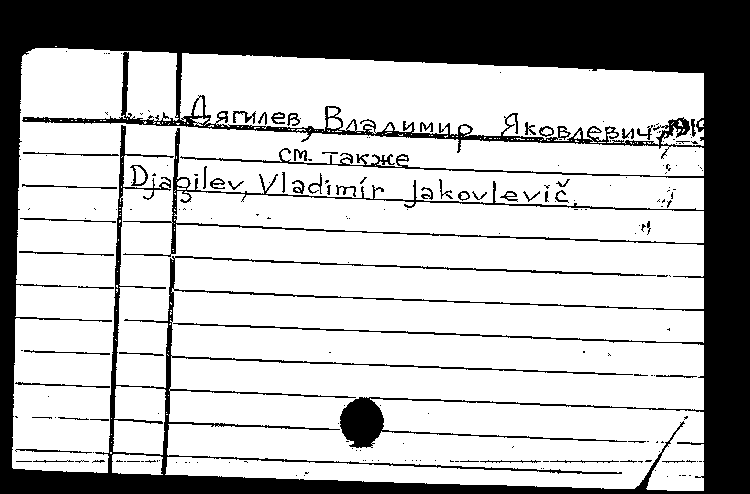 Дягилев, Владимир Яковлевич, 1919
см. также
Djagilev, Vladimír Jakovlevič.